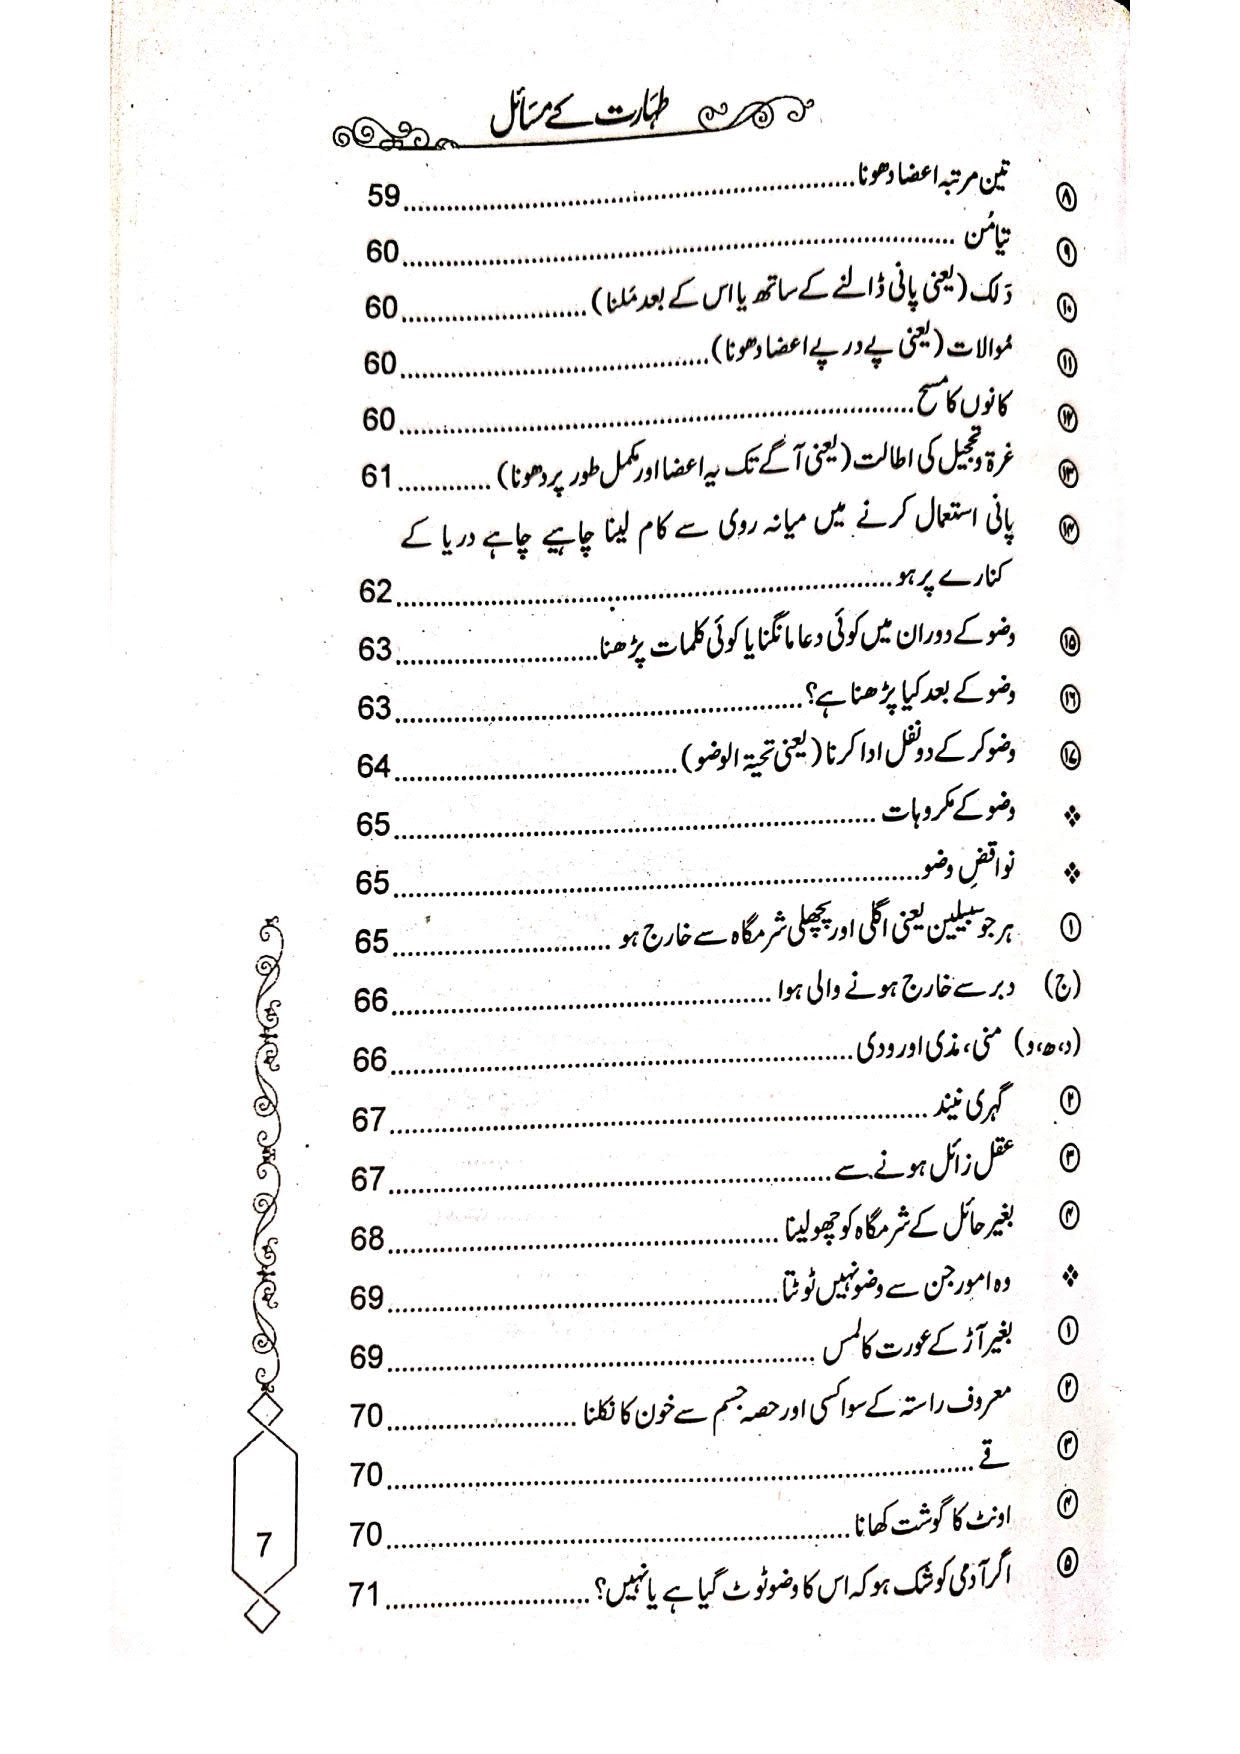 طہارت کے مسائل
۸ تین مرتبہ اعضا دھونا 59
۹ تیامُن 60
۱۰ دَلک (یعنی پانی ڈالنے کے ساتھ یا اس کے بعد مَلنا) 60
۱۱ مُوالات (یعنی پے در پے اعضا دھونا) 60
۱۲ کانوں کا مسح 60
۱۳ غرۃ وتحجیل کی اطالت (یعنی آگے تک یہ اعضا اور مکمل طور پر دھونا) 61
۱۴ پانی استعمال کرنے میں میانہ روی سے کام لینا چاہیے چاہے دریا کے
کنارے پر ہو 62
۱۵ وضو کے دوران میں کوئی دعا مانگنا یا کوئی کلمات پڑھنا 63
۱۶ وضو کے بعد کیا پڑھنا ہے؟ 63
۱۷ وضو کر کے دو نفل ادا کرنا (یعنی تحیۃ الوضو) 64
❖ وضو کے مکروہات 65
❖ نواقضِ وضو 65
۱ ہر جو سبیلین یعنی اگلی اور پچھلی شرمگاہ سے خارج ہو 65
(ج) دبر سے خارج ہونے والی ہوا 66
(د، ھ، و) منی، مذی اور ودی 66
۲ گہری نیند 67
۳ عقل زائل ہونے سے 67
۴ بغیر حائل کے شرمگاہ کو چھو لینا 68
❖ وہ امور جن سے وضو نہیں ٹوٹتا 69
۱ بغیر آڑ کے عورت کا لمس 69
۲ معروف راستہ کے سوا کسی اور حصہ جسم سے خون کا نکلنا 70
۳ قے 70
۴ اونٹ کا گوشت کھانا 70
۵ اگر آدمی کو شک ہو کہ اس کا وضو ٹوٹ گیا ہے یا نہیں؟ 71
7